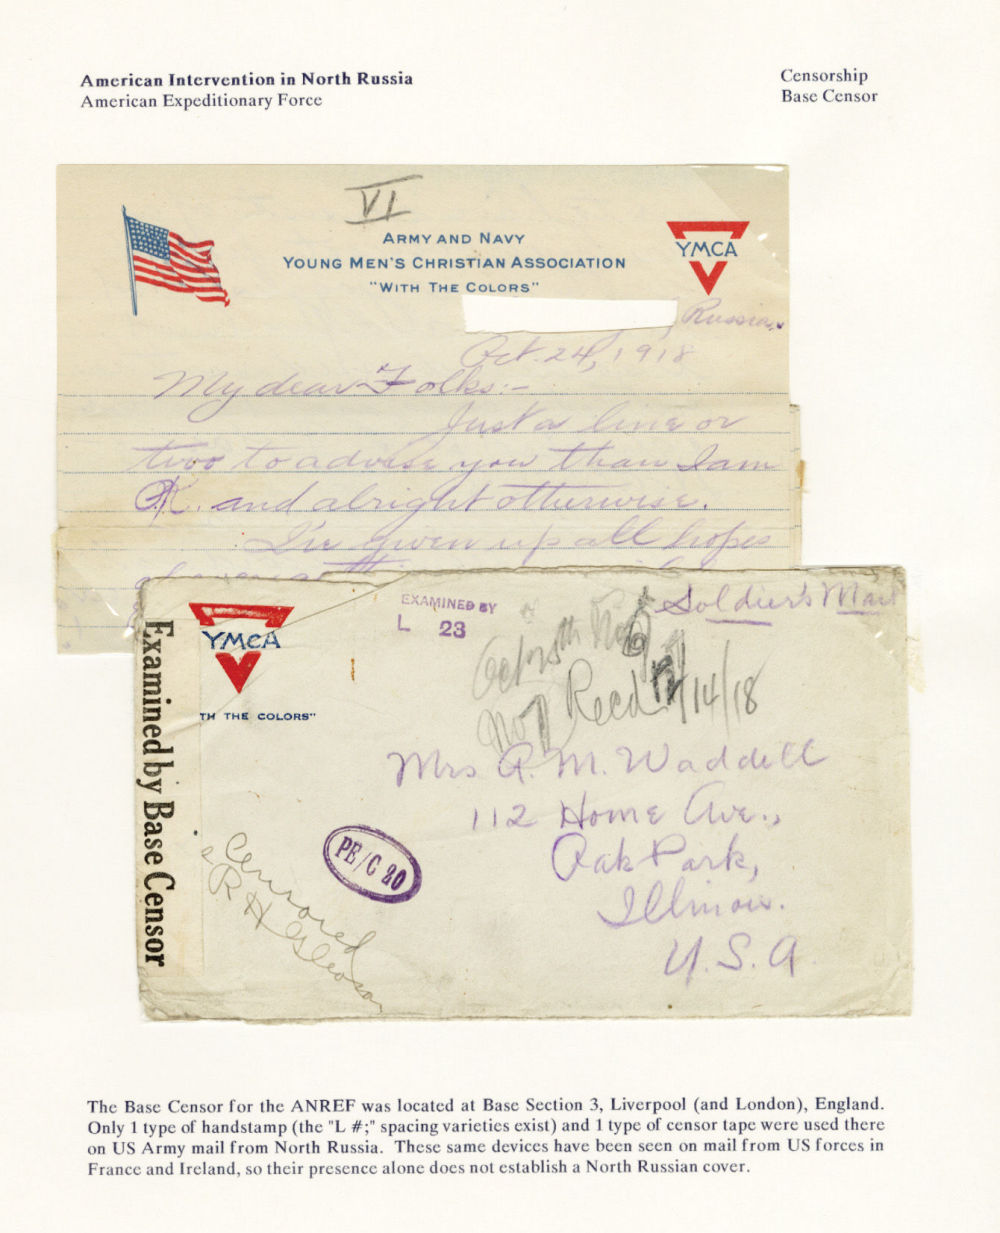 American Intervention in North Russia
American Expeditionary Force
Censorship
Base Censor
VI
ARMY AND NAVY
YOUNG MEN'S CHRISTIAN ASSOCIATION
"WITH THE COLORS"
YMCA
Russia.
Oct. 24, 1918
My dear Folks:-
Just a line or
two to advise you than I am
OK. and alright otherwise.
I've given up all hopes
YMCA
TH THE COLORS"
EXAMINED BY
L 23
Soldier's Mail
Recd 12/14/18
No 7
Mrs A. M. Waddell
112 Home Ave.,
Oak Park,
Illinois.
U.S.A.
Examined by Base Censor
PE/C 20
Censored
R H Gleason
The Base Censor for the ANREF was located at Base Section 3, Liverpool (and London), England.
Only 1 type of handstamp (the "L #;" spacing varieties exist) and 1 type of censor tape were used there
on US Army mail from North Russia. These same devices have been seen on mail from US forces in
France and Ireland, so their presence alone does not establish a North Russian cover.